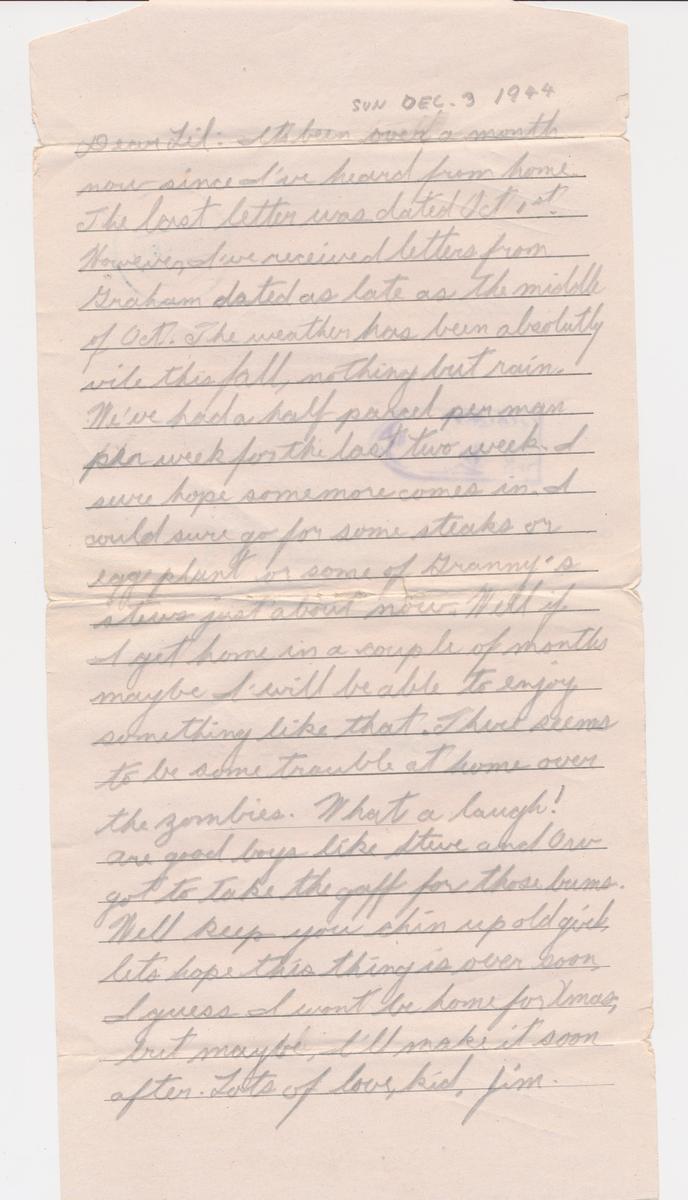 SUN DEC. 3 1944
Dear Lil: It's been over a month
now since I've heard from home.
The last letter was dated Oct 1st.
However, I've received letters from
Graham dated as late as the middle
of Oct. The weather has been absolutly
vile this fall, nothing but rain.
We've had a half parcel per man
per week for the last two week. I
sure hope somemore comes in. I
could sure go for some steaks or
egg plant or some of Granny's
stews just about now. Well if
I get home in a couple of months
maybe I will be able to enjoy
something like that. There seems
to be some trouble at home over
the zombies. What a laugh!
are good boys like Steve and Orv
got to take the gaff for those bums.
Well keep you chin up old girl,
lets hope this thing is over soon,
I guess I wont be home for Xmas,
but maybe, I'll make it soon
after. Lots of love, kid, Jim.